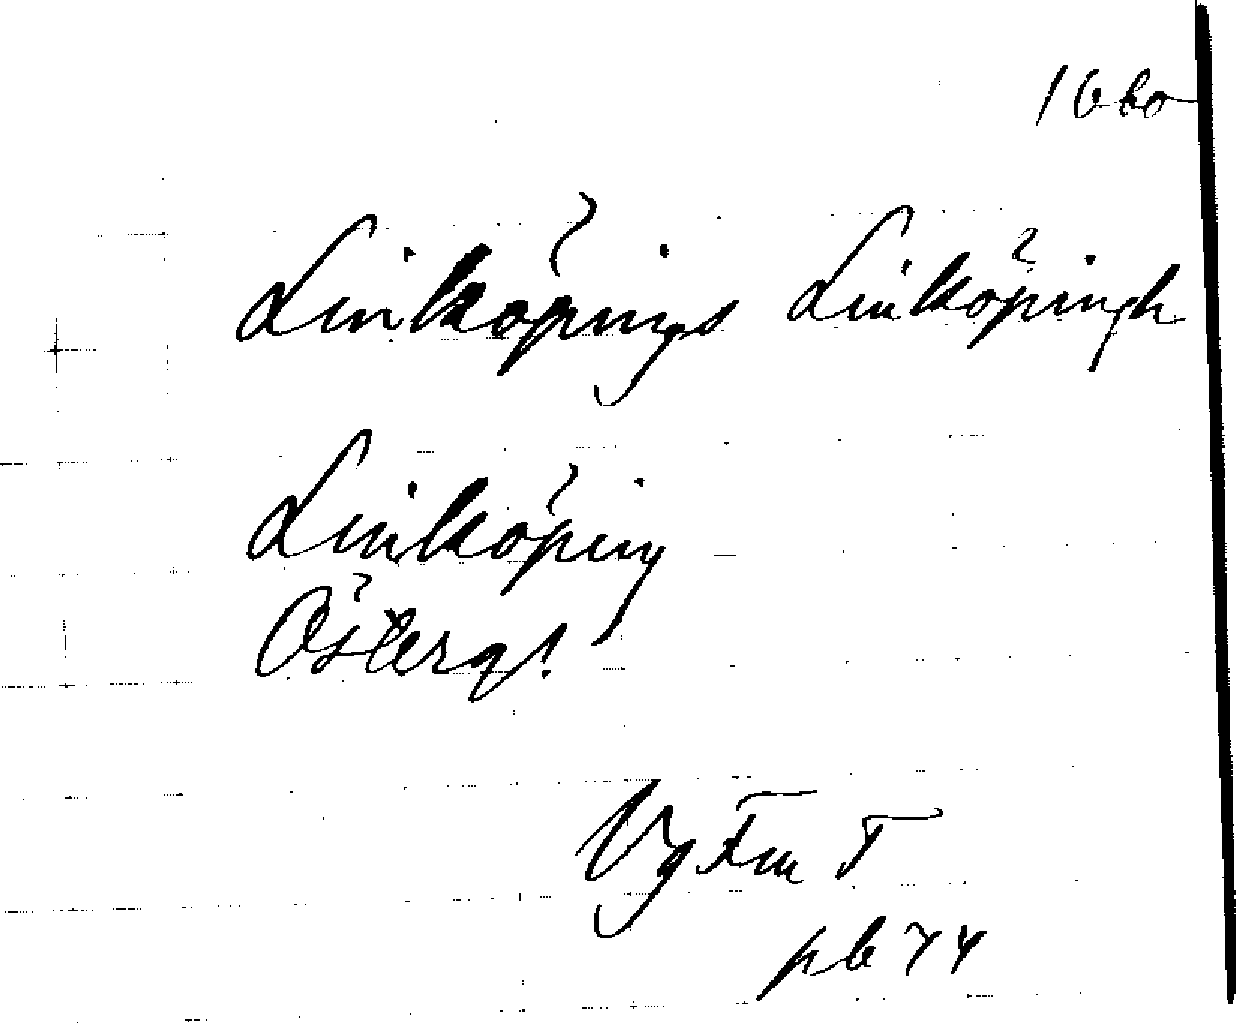 1660
Linköpings Linköpingh
Linköping
Österg!
Vg Fm T
pb 74